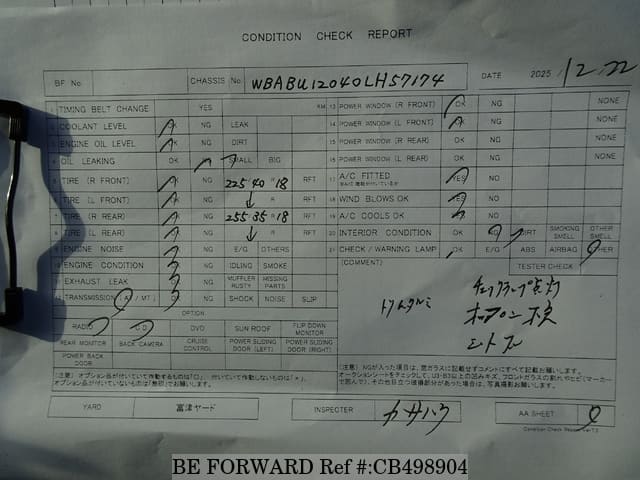 CONDITION CHECK REPORT
BF No. CHASSIS No. WBABU12040LH57174 DATE 2025/12.22
TIMING BELT CHANGE YES KM 13 POWER WINDOW (R FRONT) OK NG NONE
COOLANT LEVEL OK NG LEAK 14 POWER WINDOW (L FRONT) OK NG NONE
ENGINE OIL LEVEL OK NG DIRT 15 POWER WINDOW (R REAR) OK NG NONE
OIL LEAKING OK NG SMALL BIG 16 POWER WINDOW (L REAR) OK NG NONE
TIRE (R FRONT) OK NG 225 40 R 18 RFT 17 A/C FITTED YES NO
TIRE (L FRONT) OK NG ↓ R RFT 18 WIND BLOWS OK YES NO
TIRE (R REAR) OK NG 255 35 R 18 RFT 19 A/C COOLS OK NO
TIRE (L REAR) OK NG ↓ R RFT 20 INTERIOR CONDITION OK NG DIRT SMOKING SMELL OTHER SMELL
ENGINE NOISE OK NG E/G OTHERS 21 CHECK / WARNING LAMP OK E/G ABS AIRBAG OTHER
ENGINE CONDITION OK NG IDLING SMOKE (COMMENT) TESTER CHECK
EXHAUST LEAK OK NG MUFFLER RUSTY MISSING PARTS
TRANSMISSION (AT / MT) OK NG SHOCK NOISE SLIP
OPTION
RADIO CD DVD SUN ROOF FLIP DOWN MONITOR
REAR MONITOR BACK CAMERA CRUISE CONTROL POWER SLIDING DOOR (LEFT) POWER SLIDING DOOR (RIGHT)
POWER BACK DOOR
YARD 富津ヤード INSPECTER カサハラ AA SHEET
BE FORWARD Ref #:CB498904